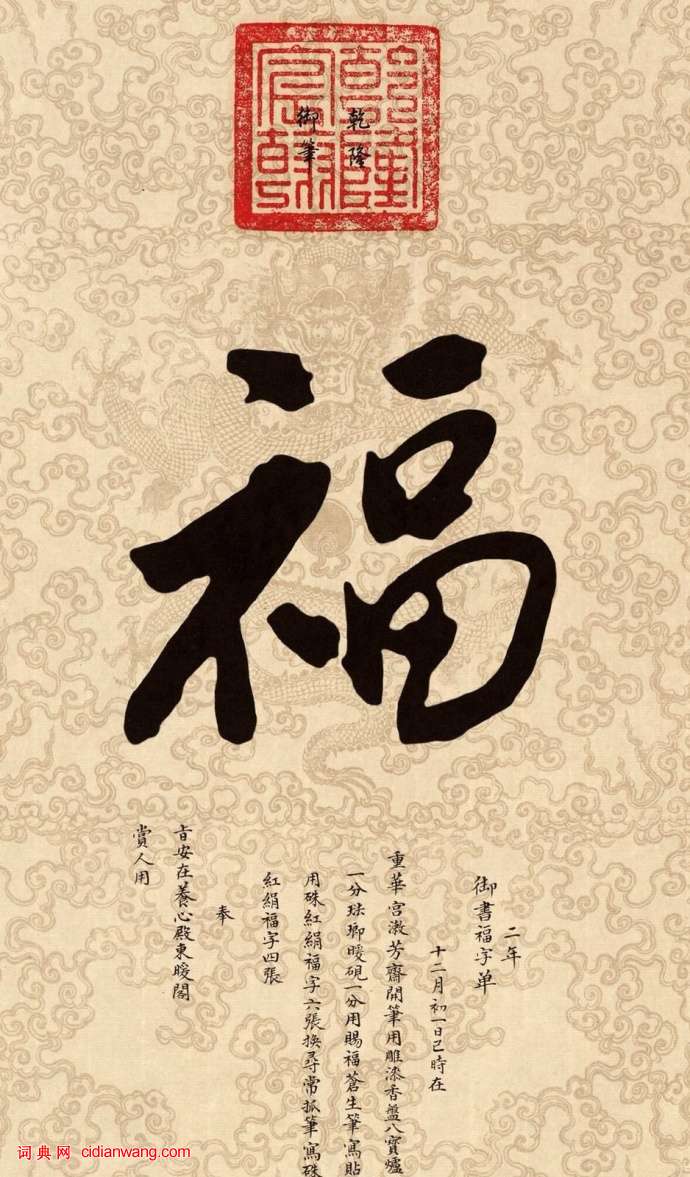 乾隆
御筆
乾隆
宸翰
福
二年
御書福字单
十二月初一日巳時在
重華宮漱芳齋開筆用雕漆香盤八寶爐
一分珐瑯暖硯一分用賜福蒼生筆寫貼
用硃紅絹福字六張换尋常抓筆寫硃
紅絹福字四張
奉
旨安在養心殿東暖閣
賞人用
词典网 cidianwang.com